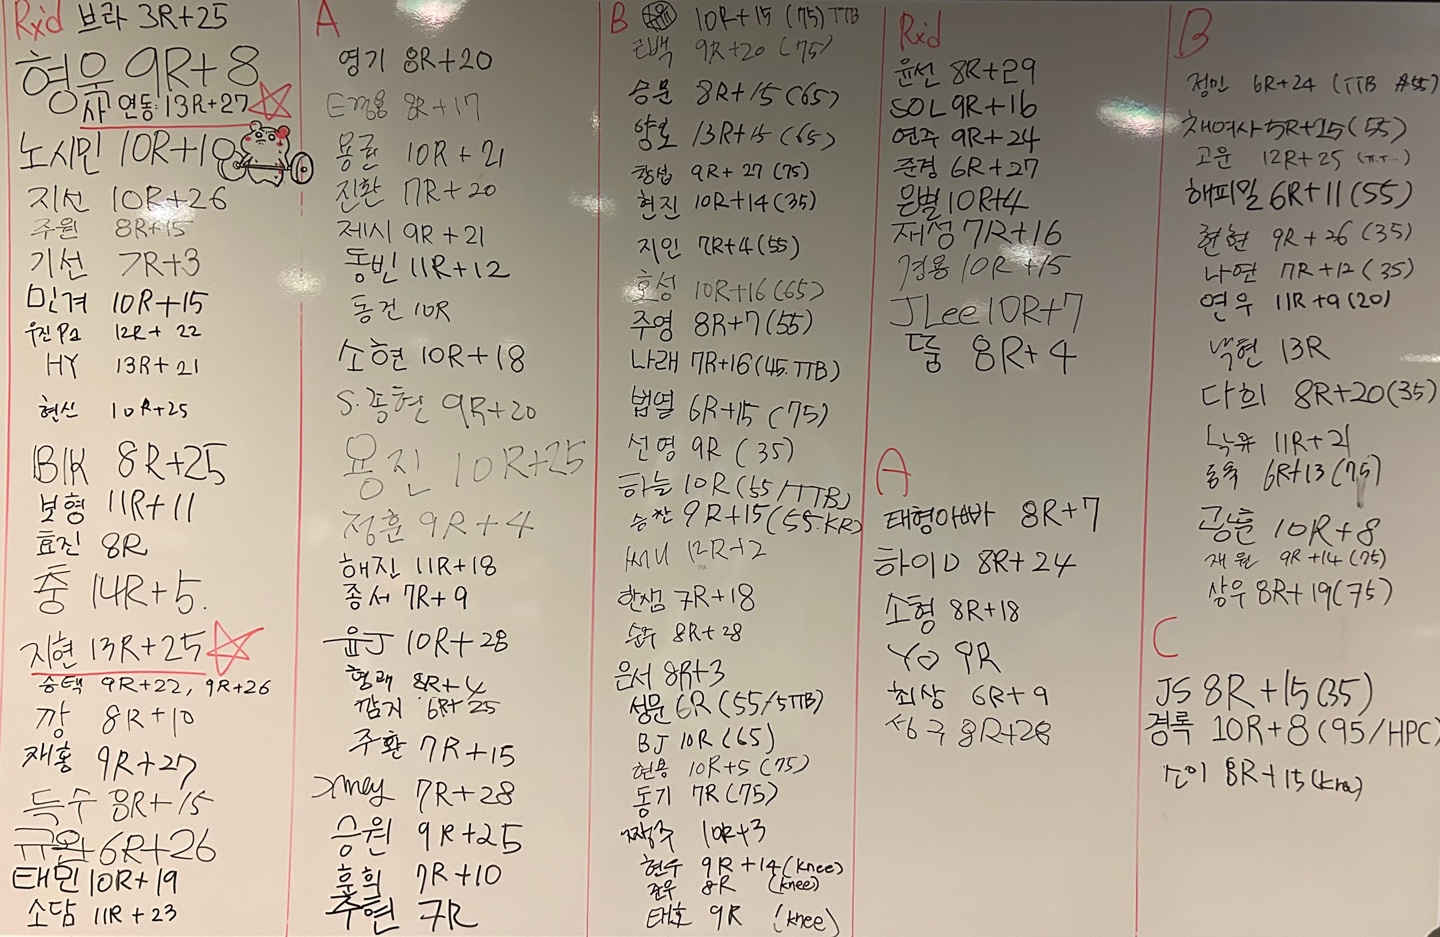 Rx'd 브라 3R+25
형욱 9R+8
사 연동: 13R+27
노시민 10R+10
지선 10R+26
주원 8R+15
기선 7R+3
민겨 10R+15
우진Pa 12R+22
HY 13R+21
현신 10R+25
BK 8R+25
보형 11R+11
효진 8R
충 14R+5.
지현 13R+25
승택 9R+22, 9R+26
깡 8R+10
재홍 9R+27
득수 8R+15
규완 6R+26
태민 10R+19
소담 11R+23
A
영기 8R+20
8R+17
용균 10R+21
진환 7R+20
제시 9R+21
동빈 11R+12
동건 10R
소현 10R+18
S.종현 9R+20
용진 10R+25
정훈 9R+4
해진 11R+18
종서 7R+9
윤J 10R+28
형래 8R+4
깜지 6R+25
주환 7R+15
7R+28
승원 9R+25
훈희 7R+10
주현 7R
B
10R+15 (75) TTB
태백 9R+20 (75)
승문 8R+15(65)
양보 13R+15 (65)
창섭 9R+27 (75)
현진 10R+14(35)
지인 7R+4(55)
호성 10R+16(65)
주영 8R+7(55)
나래 7R+16(45.TTB)
법열 6R+15 (75)
선영 9R (35)
하늘 10R(55/TTB)
승찬 9R+15(55.KR)
써니 12R+2
한샘 7R+18
8R+28
은서 8R+3
성문 6R(55/5TTB)
BJ 10R(65)
현용 10R+5 (75)
동기 7R(75)
10R+3
현수 9R+14(knee)
준우 8R (knee)
태호 9R (knee)
Rx'd
윤선 8R+29
SOL 9R+16
연주 9R+24
준경 6R+27
은별 10R+4
재성 7R+16
경용 10R+15
JLee 10R+7
뚬 8R+4
A
태형아빠 8R+7
하이D 8R+24
소형 8R+18
YO 9R
최상 6R+9
성구 8R+28
B
정민 6R+24 (TTB #55)
채여사 5R+25(55)
고운 12R+25
해피밀 6R+11(55)
현현 9R+26 (35)
나연 7R+12 (35)
연우 11R+9(20)
낙현 13R
다희 8R+20(35)
11R+21
동욱 6R+13(75)
광훈 10R+8
재원 9R+14(75)
상우 8R+19(75)
C
JS 8R+15(35)
경록 10R+8(95/HPC)
8R+15